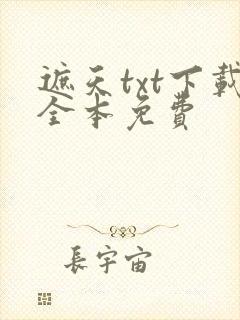 遮天txt下載
全本免費
長宇宙